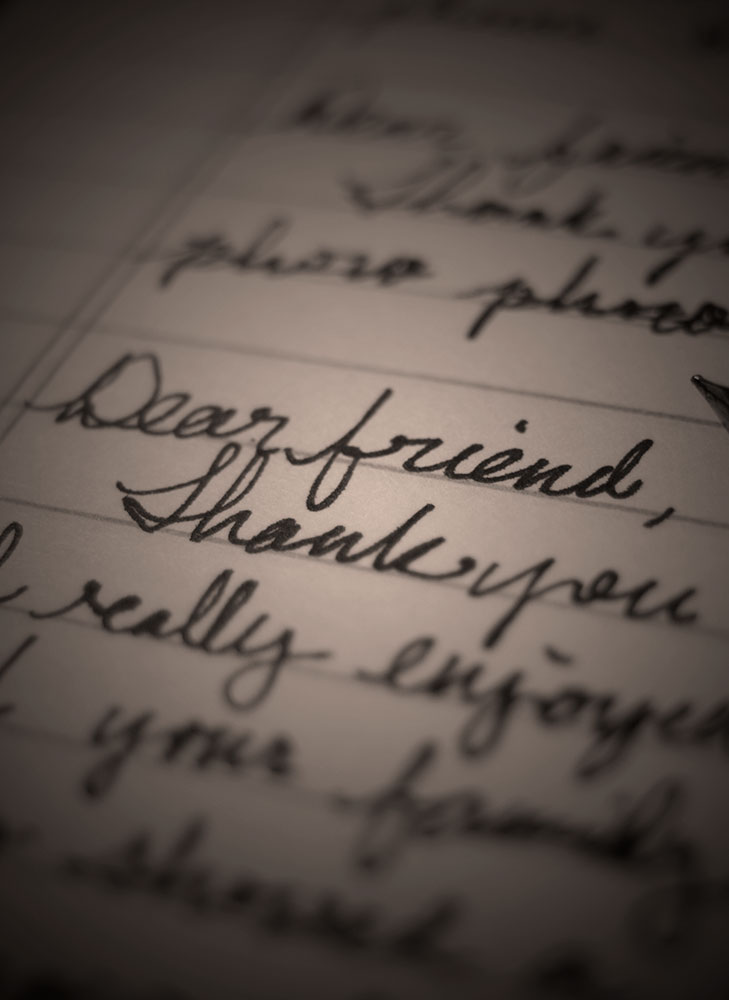 Thank yo
photo photo
Dear friend,
Thank you
I really enjoyed
your family